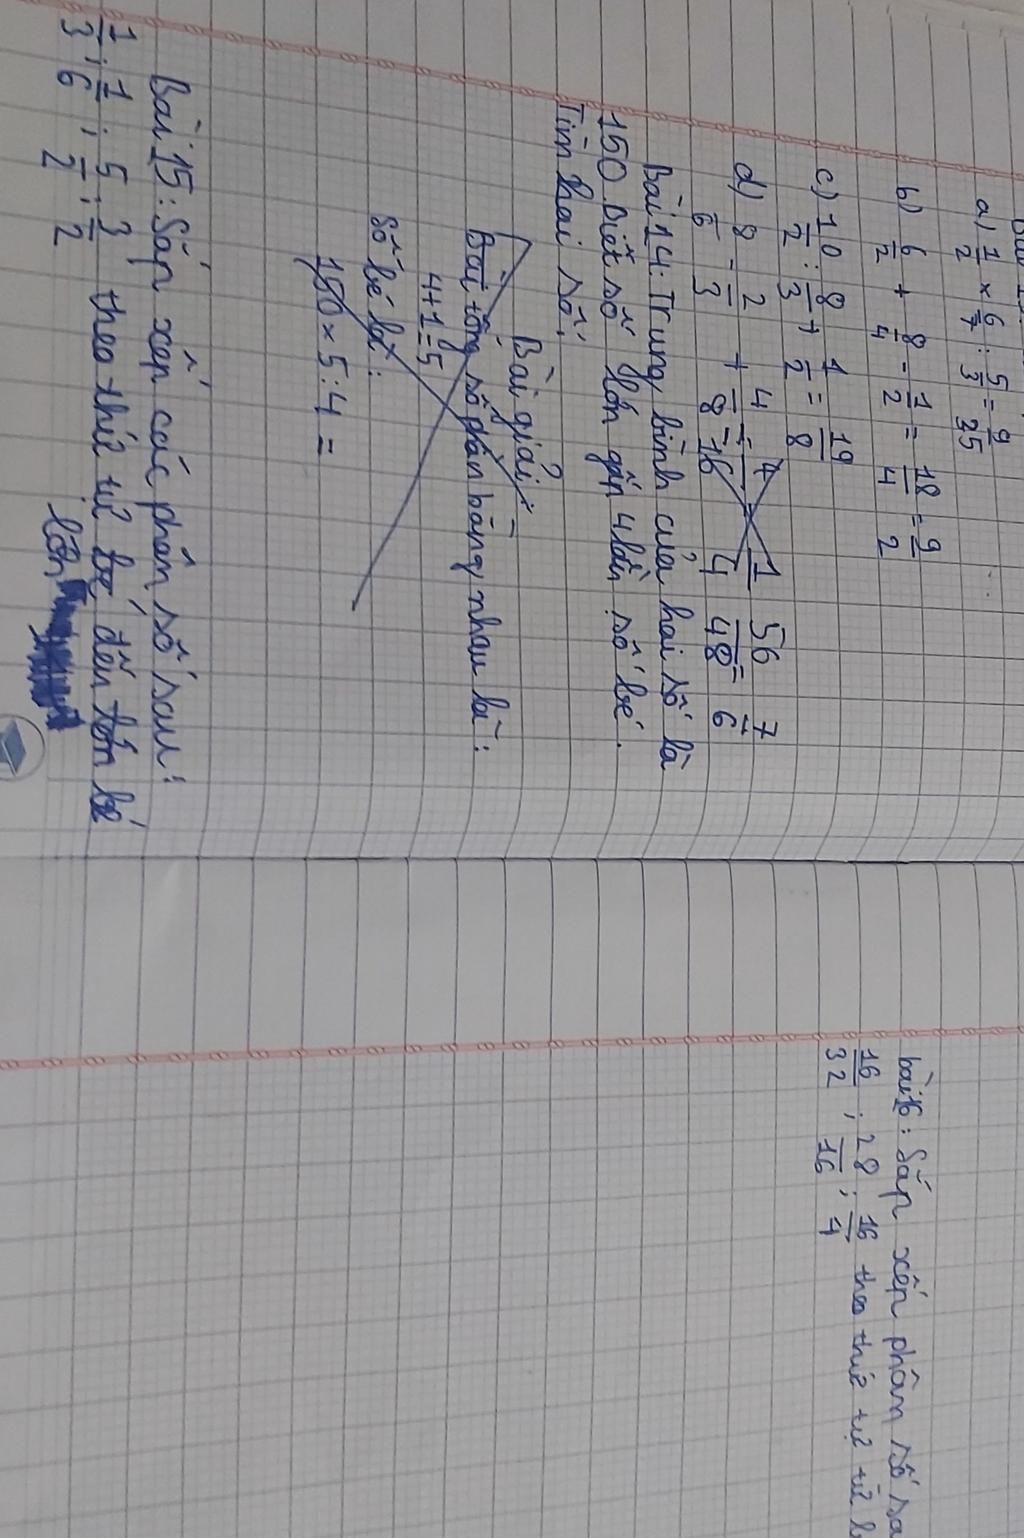 a) 1/2 × 6/7 : 5/3 = 9/35
b) 6/2 + 8/4 - 1/2 = 18/4 = 9/2
c) 10/2 : 8/3 + 1/2 = 19/8
d) 8/6 - 2/3 + 4/8 = 56/48 = 7/6
Bài 14: Trung bình của hai số là
150. Biết số lớn gấp 4 lần số bé.
Tìm hai số.
Bài giải
Bài tổng số phần bằng nhau là:
4+1=5
Số bé là:
150 × 5 : 4 =
Bài 15: Sắp xếp các phân số sau:
1/3 ; 1/6 ; 5/2 ; 3/2 theo thứ tự bé đến lớn bé
lớn
bài 16: Sắp xếp phân số sa
16/32 ; 28/16 ; 16/7 theo thứ tự từ